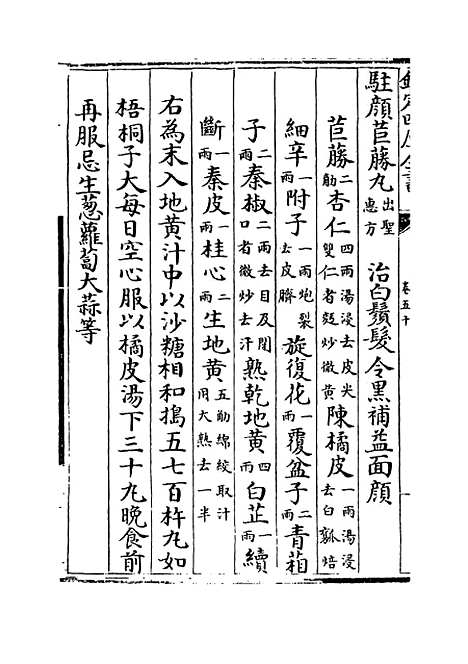 欽定四庫全書
卷五十
駐顔苣藤丸出聖惠方 治白鬚髮令黑補益面顔
苣藤二觔杏仁四兩湯浸去皮尖雙仁者麩炒微黄陳橘皮一兩湯浸去白瓤焙
細辛一兩附子一兩炮裂去皮臍旋復花一兩覆盆子二兩青葙
子二兩秦椒二兩去目及閉口者微炒去汗熟乾地黄四兩白芷一兩續
斷一兩秦皮一兩桂心二兩生地黄五觔綿絞取汁用大熟去一半
右為末入地黄汁中以沙糖相和搗五七百杵丸如
梧桐子大每日空心服以橘皮湯下三十丸晚食前
再服忌生蔥蘿蔔大蒜等